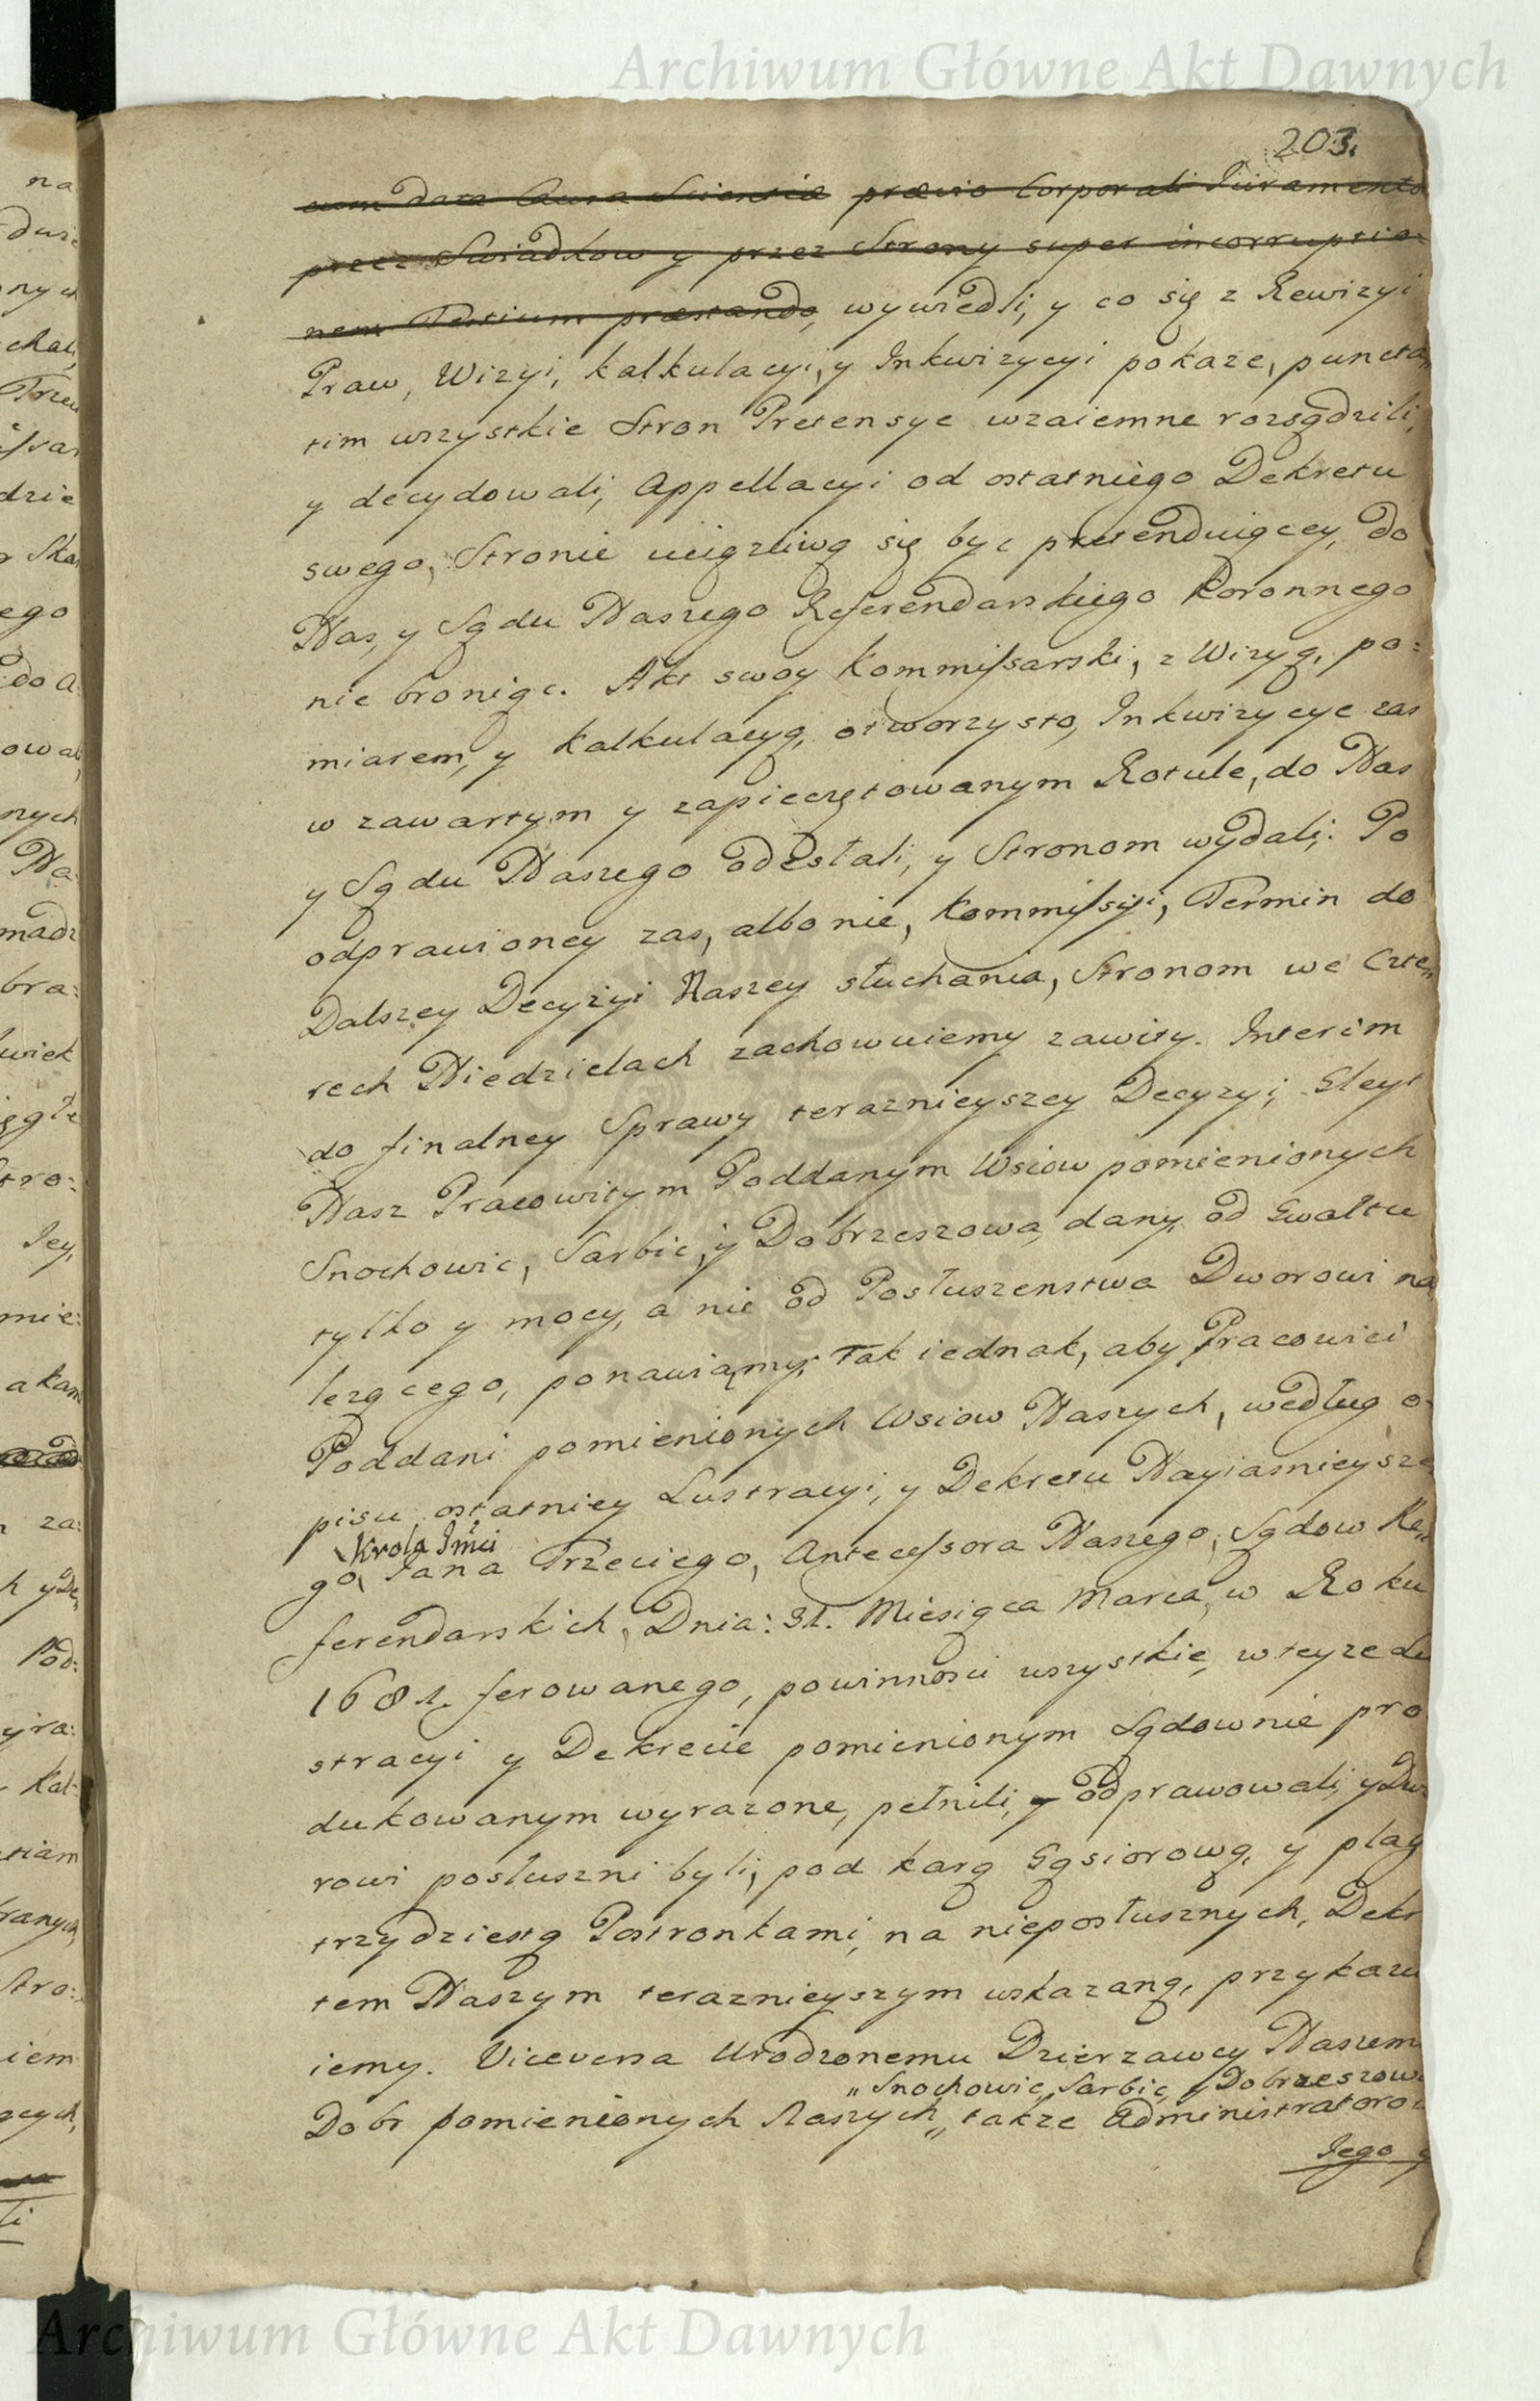 Archiwum Główne Akt Dawnych
203.
cum data Cura Scientiæ prævio Corporali Juramento
przez Swiadkow y przez Strony super incorruptio=
nem Testium præstando, wywiedli, y co się z Rewizyi
Praw, Wizyi, kalkulacyi, y Inkwizycyi pokaze, puncta
tim wszystkie Stron Pretensye wzaiemne rozsądzili,
y decydowali, Appellacyi od ostatniego Dekretu
swego, Stronie uciążliwą się byc pretenduiącey, do
Nas, y Sądu Naszego Referendarskiego Koronnego
nie broniąc. Akt swoy Kommissarski, z Wizyą, po=
miarem, y kalkulacyą, otworzysto, Inkwizycye zas
w zawartym y zapieczętowanym Rotule, do Nas
y Sądu Naszego odesłali, y Stronom wydali. Po
odprawioney zas, albo nie, Kommissyi, Termin do
Dalszey Decyzyi Naszey słuchania, Stronom we Czte„
rech Niedzielach zachowuiemy zawity. Interim
do finalney Sprawy teraznieyszey Decyzyi, Gleyt
Nasz Pracowitym Poddanym Wsiow pomienionych
Snochowic, Sarbic, y Dobrzeszowa, dany, od Gwałtu
tylko y mocy, a nie od Posłuszenstwa Dworowi na
lezącego, ponawiamy. Tak iednak, aby Pracowici
Poddani pomienionych Wsiow Naszych, według o=
pisu ostatniey Lustracyi, y Dekretu Nayiasnieysze
Krola Jmći
go Jana Trzeciego, Antecessora Naszego, Sądow Re„
ferendarskich, Dnia: 31. Miesiąca Marca, w Roku
1681. ferowanego, powinnosci wszystkie, w teyze Lu
stracyi y Dekrecie pomienionym Sądownie pro
dukowanym wyrazone, pełnili, y odprawowali, y Dwo
rowi posłuszni byli, pod karą Gąsiorową, y plag
trzydziestą Postronkami, na nieposłusznych, Dekr
tem Naszym teraznieyszym wskazaną, przykazu
iemy. Viceversa Urodzonemu Dzierzawcy Naszem
„ Snochowic, Sarbic, y Dobrzeszowa
Dobr pomienionych Naszych „ takze Administratorow
Jego y
Archiwum Główne Akt Dawnych